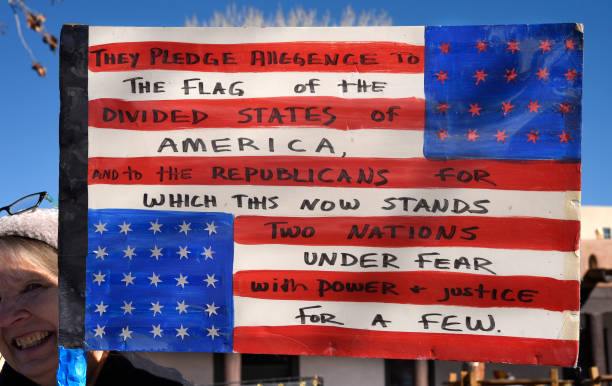 THEY PLEDGE AllEGENCE TO
THE FLAG of THE
DIVIDED STATES of
AMERICA,
AND to THE REPUBLICANS FOR
WHICH THIS NOW STANDS
TWO NATIONS
UNDER FEAR
with POWER + JUSTICE
FOR A FEW.